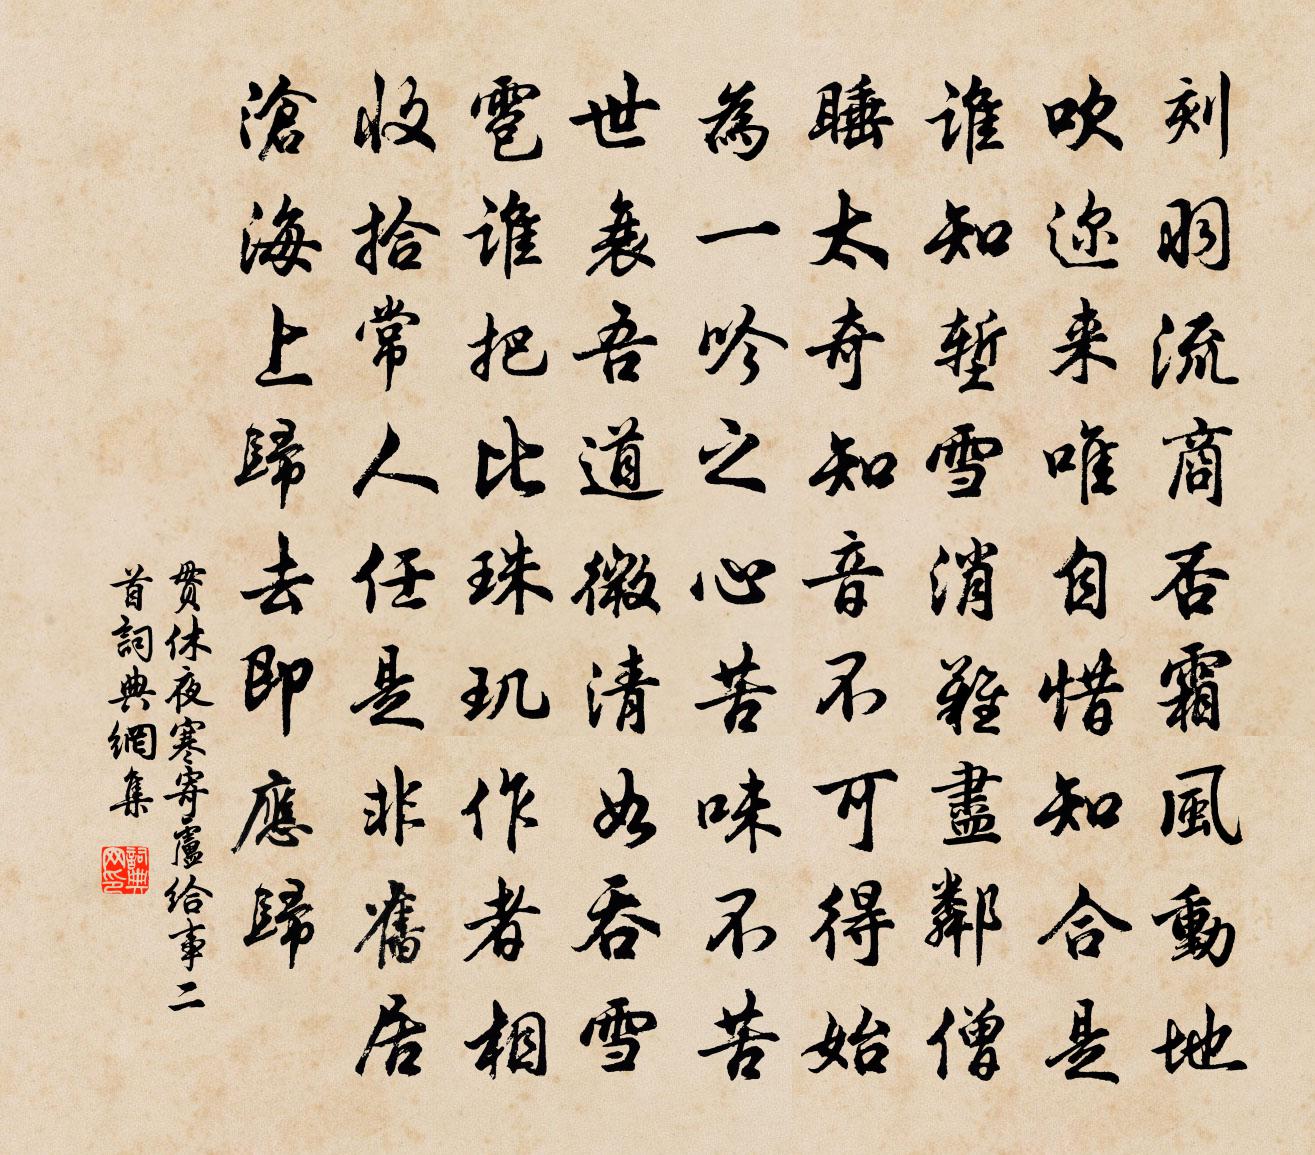 刻羽流商否霜風動地
吹迩来唯自惜知合是
誰知塹雪消難盡鄰僧
睡太奇知音不可得始
為一吟之心苦味不苦
世衰吾道微清如吞雪
雹誰把比珠玑作者相
收拾常人任是非舊居
滄海上歸去即應歸
贯休夜寒寄盧给事二
首詞典網集
詞典网印